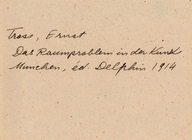 Tross, Ernst
Das Raumproblem in der Kunst
Munchen, éd. Delphin 1914